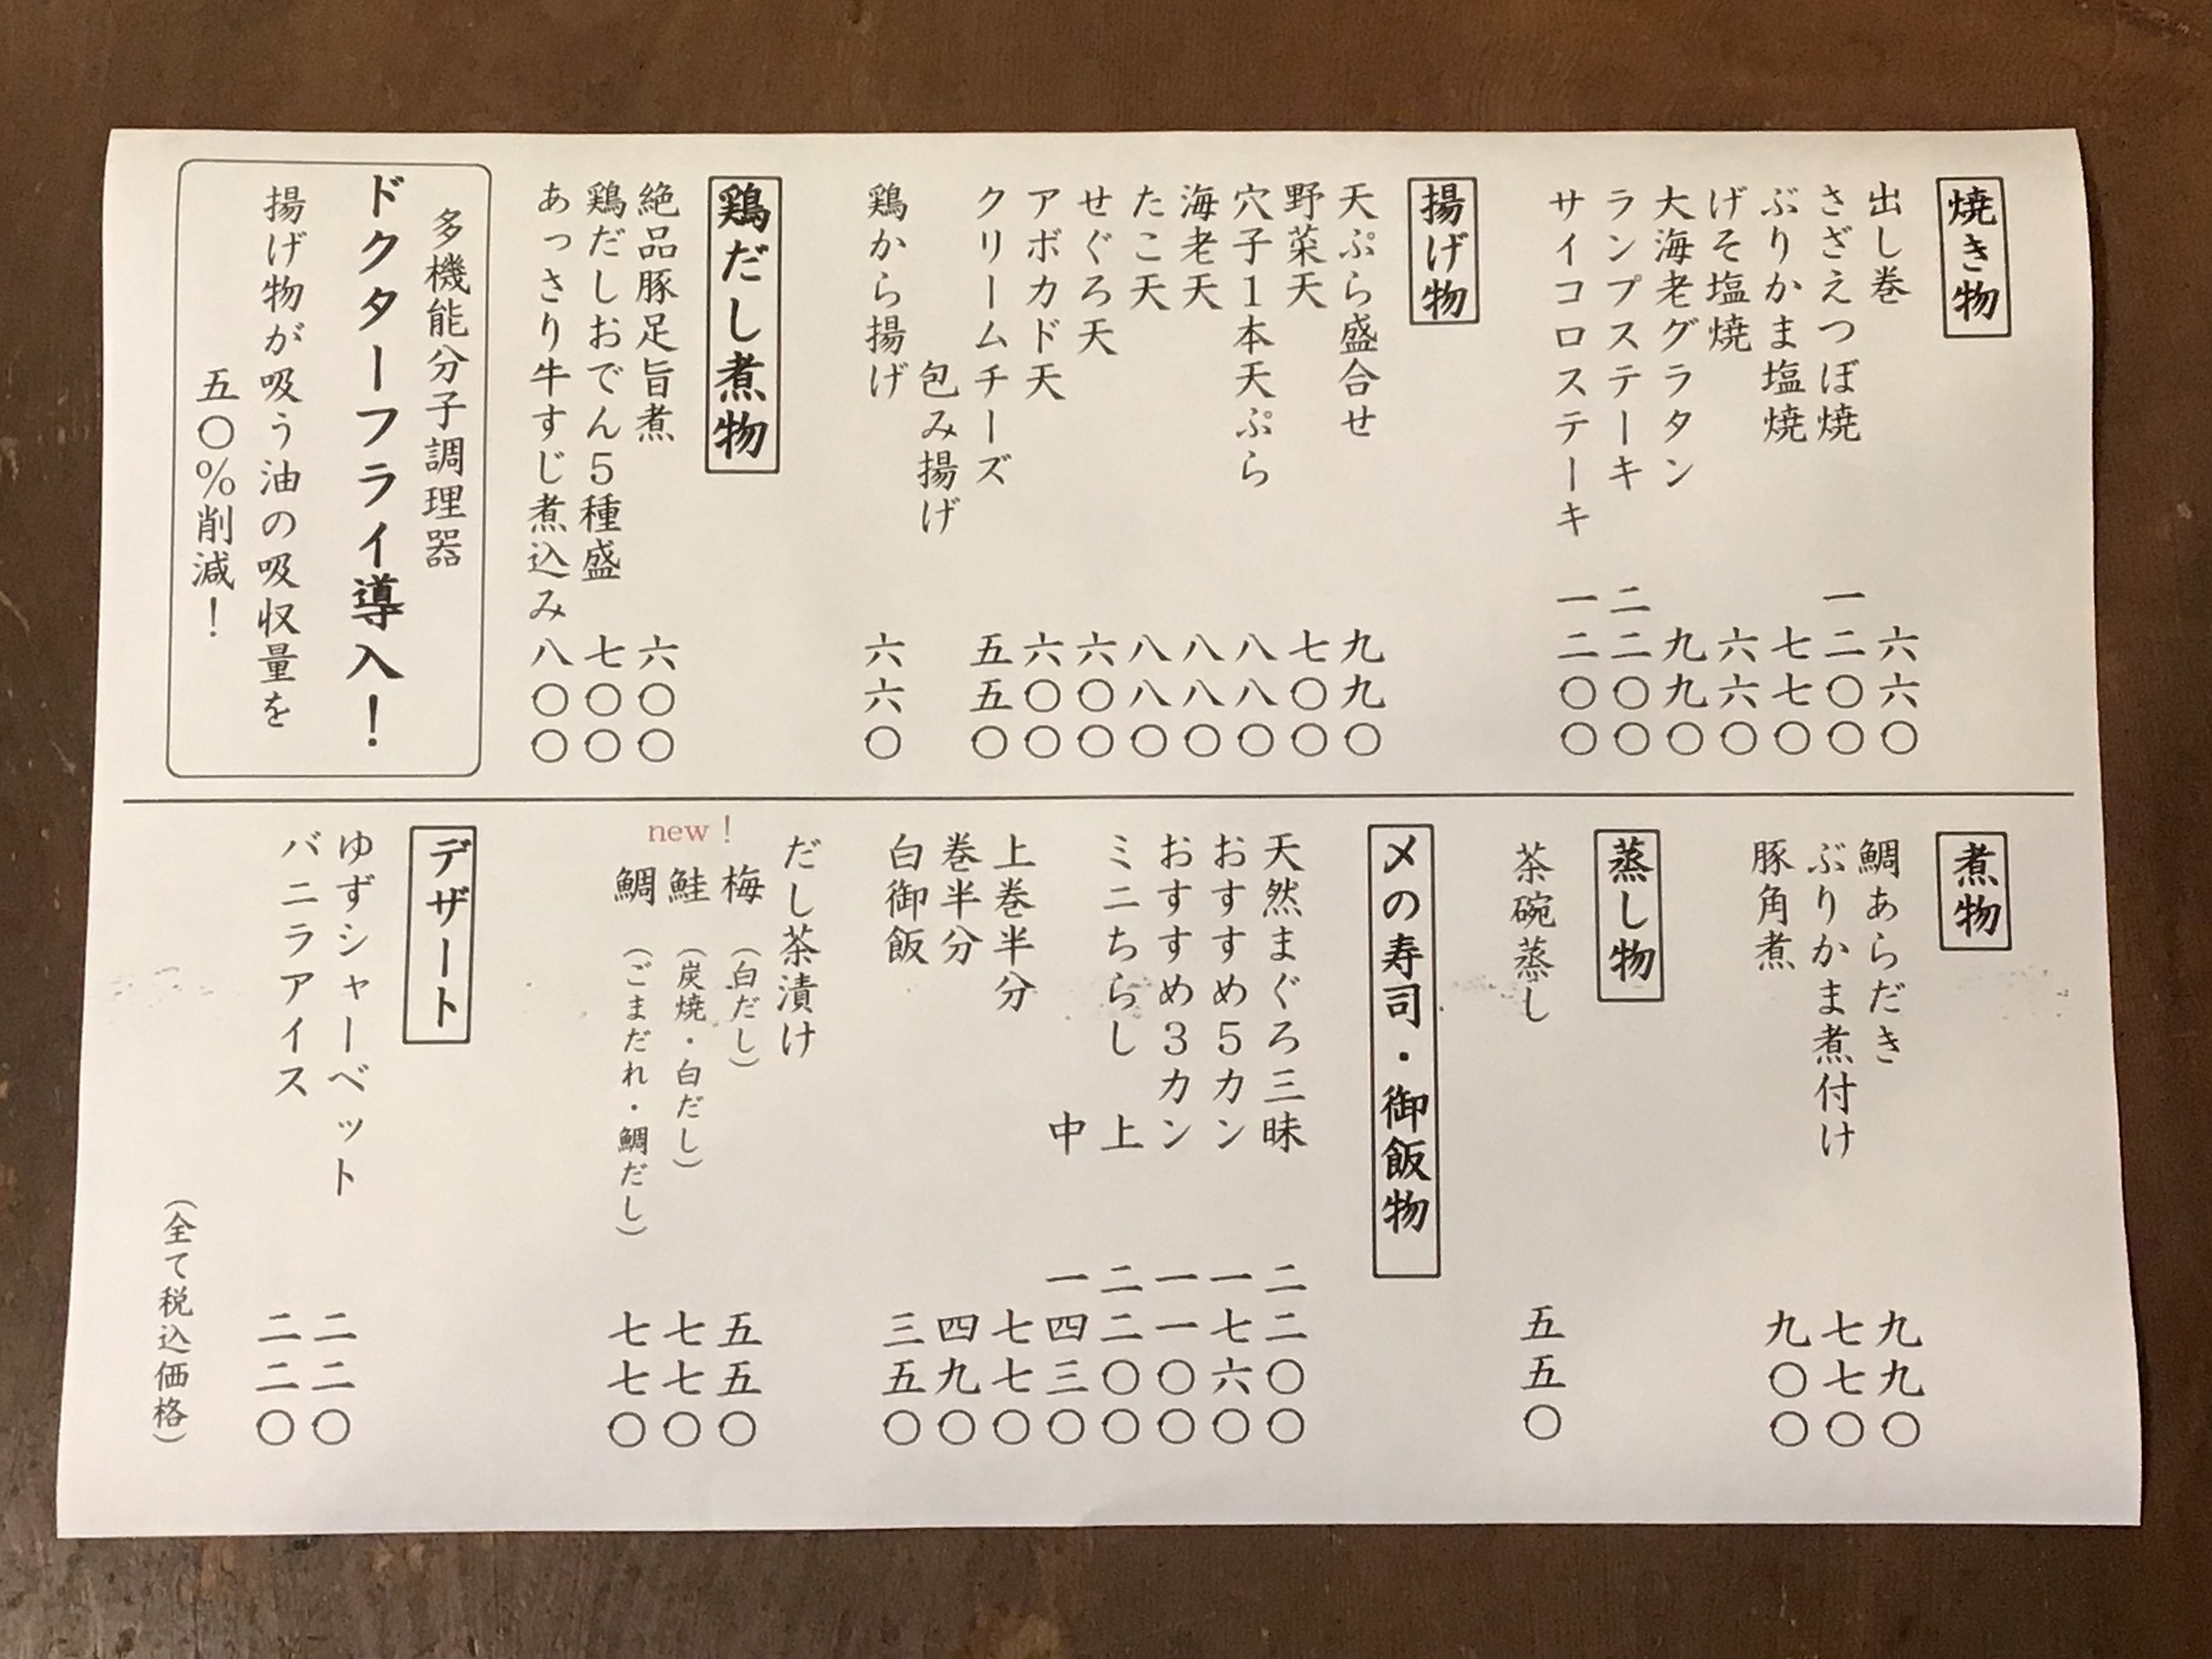 焼き物
出し巻 六六〇
さざえつぼ焼 一二〇〇
ぶりかま塩焼 七七〇
げそ塩焼 六六〇
大海老グラタン 九九〇
ランプステーキ 二二〇〇
サイコロステーキ 一二〇〇
揚げ物
天ぷら盛合せ 九九〇
野菜天 七〇〇
穴子1本天ぷら 八八〇
海老天 八八〇
たこ天 八八〇
せぐろ天 六〇〇
アボカド天 六〇〇
クリームチーズ 五五〇
包み揚げ
鶏から揚げ 六六〇
鶏だし煮物
絶品豚足旨煮 六〇〇
鶏だしおでん5種盛 七〇〇
あっさり牛すじ煮込み 八〇〇
多機能分子調理器
ドクターフライ導入！
揚げ物が吸う油の吸収量を
五〇%削減！
煮物
鯛あらだき 九九〇
ぶりかま煮付け 七七〇
豚角煮 九〇〇
蒸し物
茶碗蒸し 五五〇
〆の寿司・御飯物
天然まぐろ三昧 二二〇〇
おすすめ5カン 一七六〇
おすすめ3カン 一一〇〇
ミニちらし 上 二二〇〇
中 一四三〇
上巻半分 七七〇
巻半分 四九〇
白御飯 三五〇
だし茶漬け
梅（白だし） 五五〇
鮭（炭焼・白だし） 七七〇
new！
鯛（ごまだれ・鯛だし） 七七〇
デザート
ゆずシャーベット 二二〇
バニラアイス 二二〇
（全て税込価格）